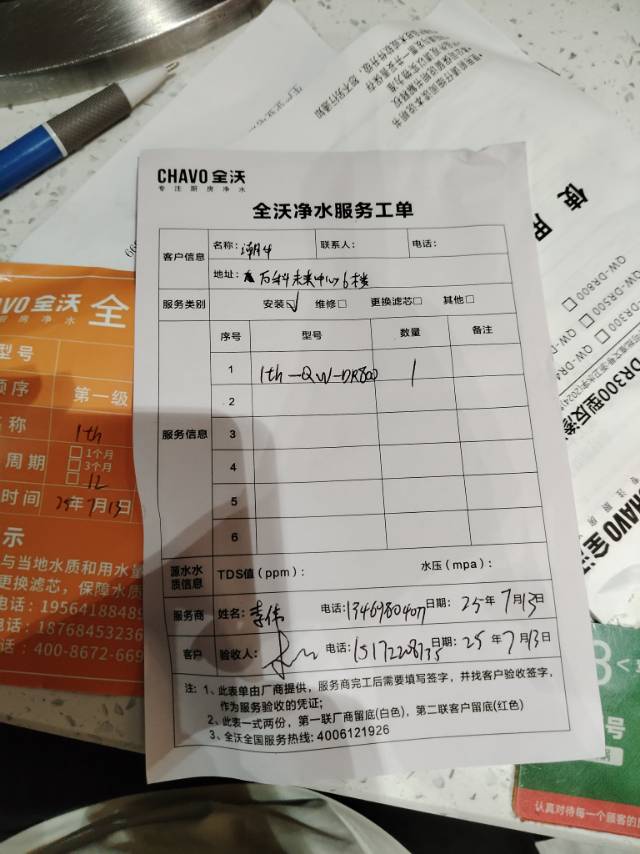 CHAVO 全沃
专注厨房净水
全沃净水服务工单
客户信息
名称：
联系人：
电话：
地址：万科未来中心6楼
服务类别
安装☑ 维修□ 更换滤芯□ 其他□
服务信息
序号 型号 数量 备注
1 1th-QW-DR800 1
2
3
4
5
6
源水水质信息
TDS值（ppm）：
水压（mpa）：
服务商 姓名：李伟 电话：13469780407 日期：25年7月13日
客户 验收人： 电话： 日期：25年7月13日
注：1、此表单由厂商提供，服务商完工后需要填写签字，并找客户验收签字，
作为服务验收的凭证；
2、此表一式两份，第一联厂商留底(白色)，第二联客户留底(红色)
3、全沃全国服务热线：4006121926
AVO 全沃 全
厨房净水
型号
顺序 第一级
名称 1th
周期 □1个月
□3个月
□12
时间 25年7月13日
示
与当地水质和用水量
更换滤芯，保障水质
电话：1956418848
电话：18768453236
电话：400-8672-669
使用
QW-DR800□
QW-DR500
QW-DR300
DR300型反渗
CHAVO 全沃
专注厨房
号
认真对待每一个顾客的